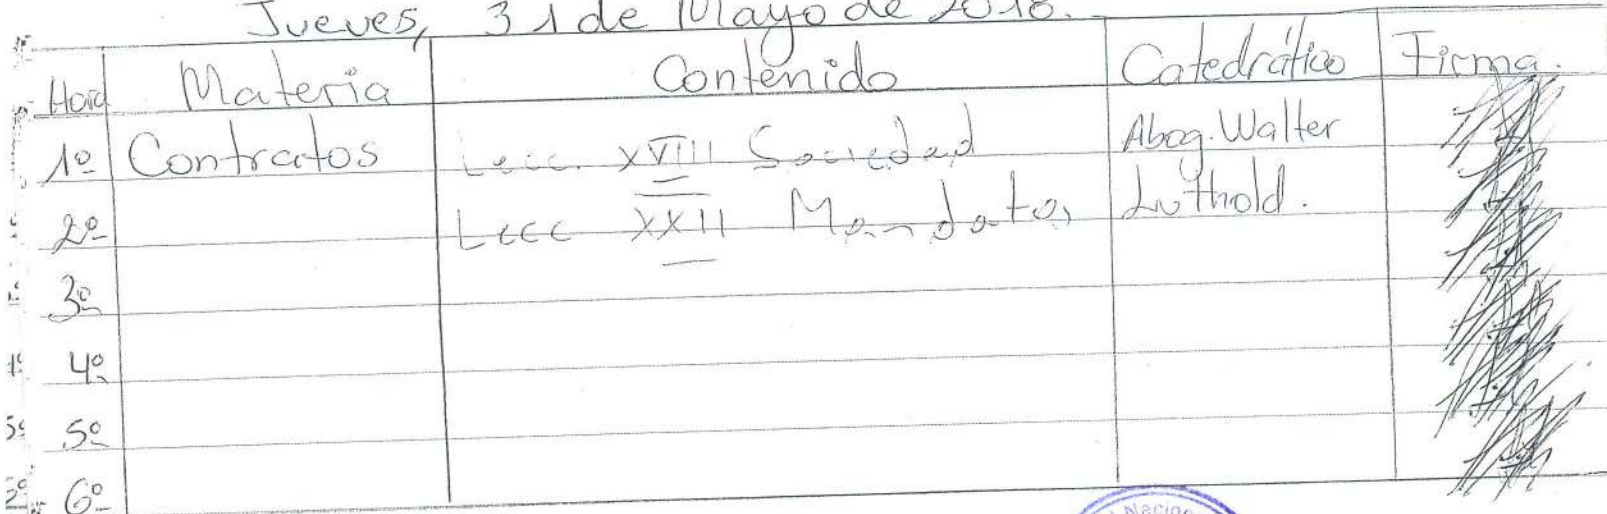 Jueves, 31 de Mayo de 2018.
Hora Materia Contenido Catedrático Firma.
1º Contratos Lecc. XVIII Sociedad Abog. Walter
2º Lecc XXII Mandatos Luthold.
3º
4º
5º
6º
Nacion